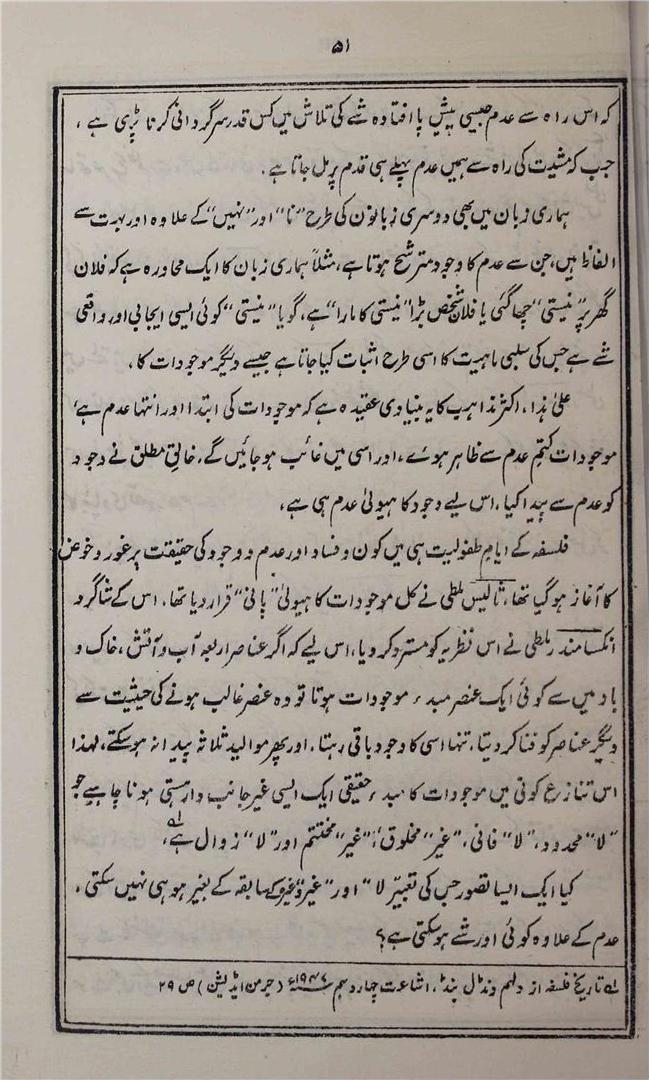 ۵۱
کہ اس راہ سے عدم جیسی پیش پا افتادہ شے کی تلاش میں کس قدر سرگردانی کرنا پڑی ہے،
جب کہ مشیت کی راہ سے ہمیں عدم پہلے ہی قدم پر مل جاتا ہے.
ہماری زبان میں بھی دوسری زبانوں کی طرح "نا" اور "نہیں" کے علاوہ اور بہت سے
الفاظ ہیں، جن سے عدم کا وجود مترشح ہوتا ہے، مثلاً ہماری زبان کا ایک محاورہ ہے کہ فلان
گھر پر "نیستی" چھا گئی یا فلان شخص بڑا "نیستی کا مارا" ہے، گویا "نیستی" کوئی ایسی ایجابی اور واقعی
شے ہے جس کی سلبی ماہیت کا اسی طرح اثبات کیا جاتا ہے جیسے دیگر موجودات کا،
علیٰ ہذا، اکثر مذاہب کا یہ بنیادی عقیدہ ہے کہ موجودات کی ابتدا اور انتہا عدم ہے،
موجودات کتم عدم سے ظاہر ہوئے، اور اسی میں غائب ہو جائیں گے، خالق مطلق نے وجود
کو عدم سے پیدا کیا، اس لیے وجود کا ہیولیٰ عدم ہی ہے،
فلسفہ کے ایام طفولیت ہی میں کون و فساد اور عدم و وجود کی حقیقت پر غور و خوض
کا آغاز ہو گیا تھا، ثالیس ملطی نے کل موجودات کا ہیولیٰ "پانی" قرار دیا تھا، اس کے شاگرد
انکسامندر ملطی نے اس نظریہ کو مسترد کر دیا، اس لیے کہ اگر عناصر اربعہ آب و آتش، خاک و
باد میں سے کوئی ایک عنصر مبدء موجودات ہوتا تو وہ عنصر غالب ہونے کی حیثیت سے
دیگر عناصر کو فنا کر دیتا، تنہا اسی کا وجود باقی رہتا، اور پھر موالید ثلاثہ پیدا نہ ہو سکتے، لہذا
اس تنازع کونی میں موجودات کا مبدء حقیقی ایک ایسی غیر جانب دار ہستی ہونا چاہیے جو
"لا" محدود، "لا" فانی، "غیر" مخلوق، "غیر" مختتم اور "لا" زوال ہے،
کیا ایک ایسا تصور جس کی تعبیر "لا" اور "غیر" وغیرہ کے سابقہ کے بغیر ہو ہی نہیں سکتی،
عدم کے علاوہ کوئی اور شے ہو سکتی ہے؟
لہ تاریخ فلسفہ از ولہم ونڈل بنڈ، اشاعت چاردہم ۱۹۴۷ء (جرمن ایڈیشن) ص ۲۹